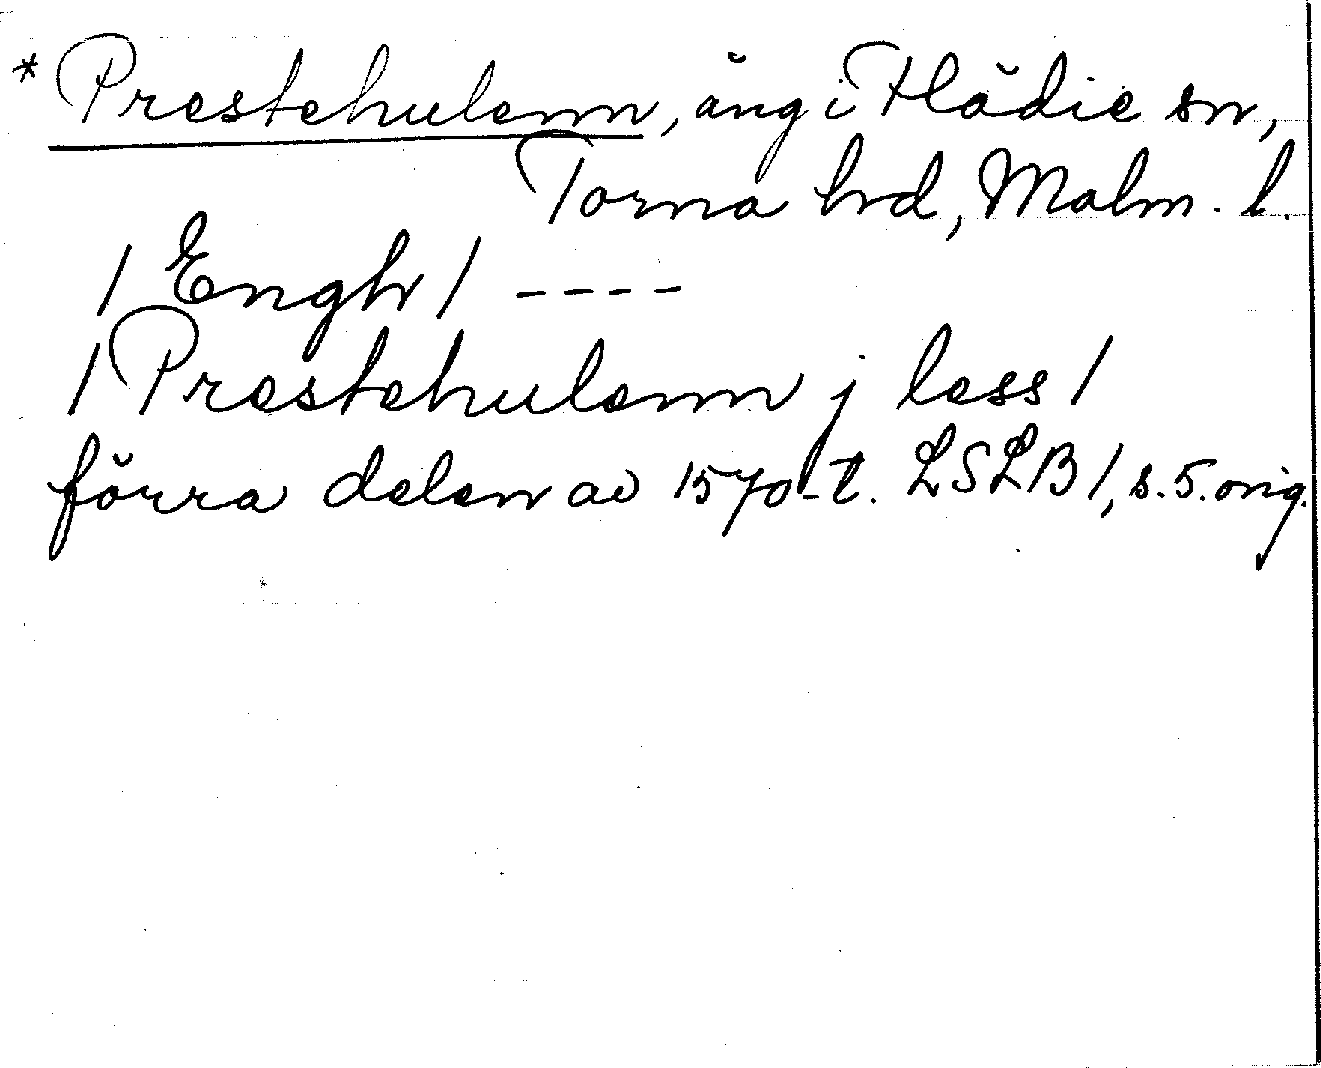 * Prestehulenn, äng i Flädie sn,
Torna hd, Malm. l.
/ Engh / ----
/ Prestehulenn j less /
förra delen av 1570-t. LSLB 1, s. 5. orig.